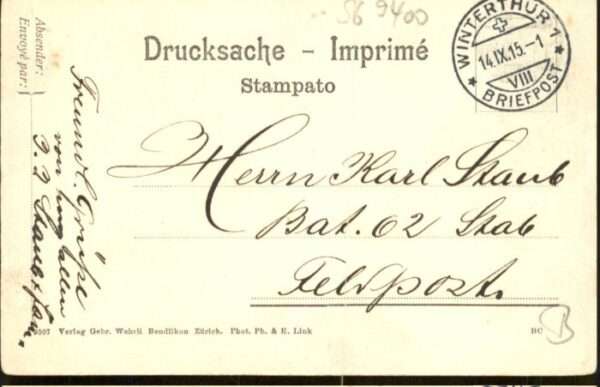 S6 9400
Drucksache – Imprimé
Stampato
WINTERTHUR 1
14.IX.15.–1
VIII
BRIEFPOST
Absender:
Envoyé par:
Freundl. Grüße
von
J. J. Staub + Fam.
Herrn Karl Staub
Bat. 62 Stab
Feldpost.
Verlag Gebr. Wehrli Bendlikon Zürich. Phot. Ph. & E. Link
BC
B